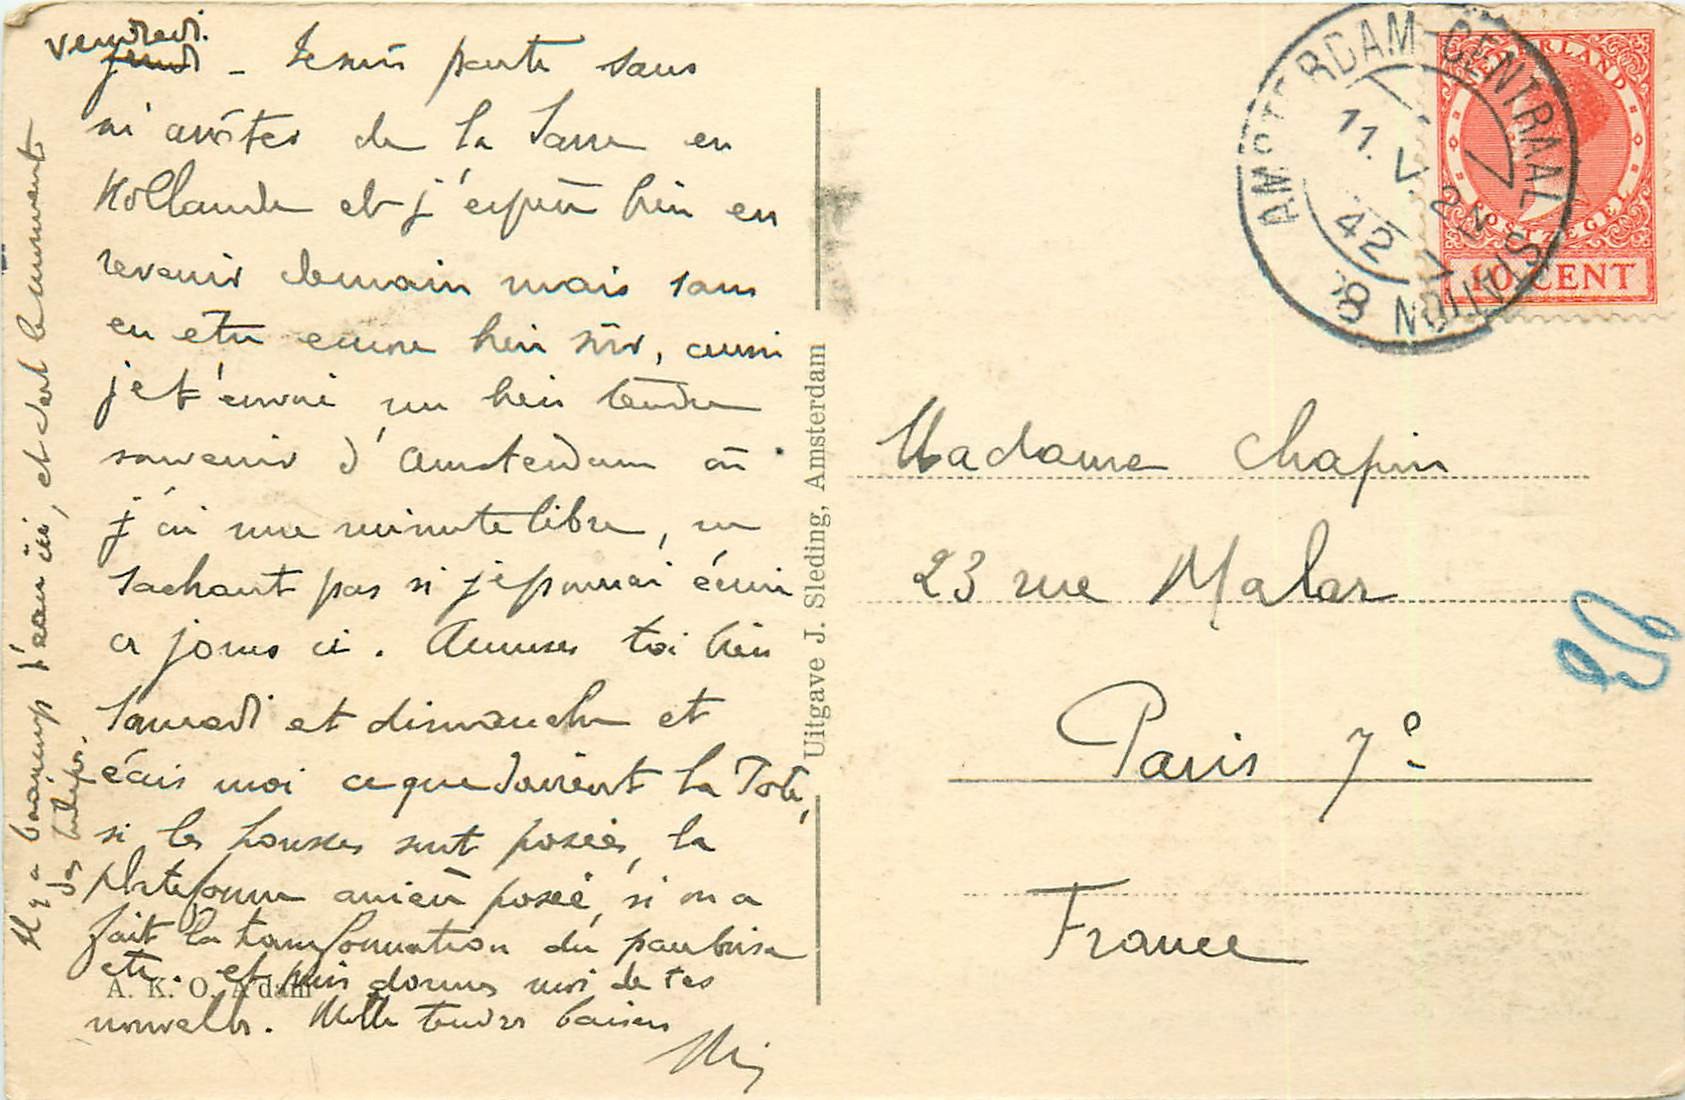 vendredi.
jeudi - Je suis partie sans
m'arrêter de la Sarre en
Hollande et j'espère bien en
revenir demain mais sans
en être encore bien sûr, aussi
je t'envoi un bien tendre
souvenir d'Amsterdam où
j'ai une minute libre, ne
sachant pas si je pourrai écrire
ces jours ci. Amuses toi bien
Samedi et dimanche et
écris moi ce que devient la
si les housses sont posées, la
plateforme arrière posée, si on a
fait la transformation du parebrise
etc. et puis donnes moi de tes
nouvelles. Mille tendres baisers
Il y a beaucoup d'eau ici, et c'est
pas
A. K. O. A'dam
Uitgave J. Sleding, Amsterdam
AMSTERDAM CENTRAAL STATION
11.V
42
8
NEDERLAND
POSTZEGEL
10 CENT
Madame Chapin
23 rue Malar
Paris 7e
France